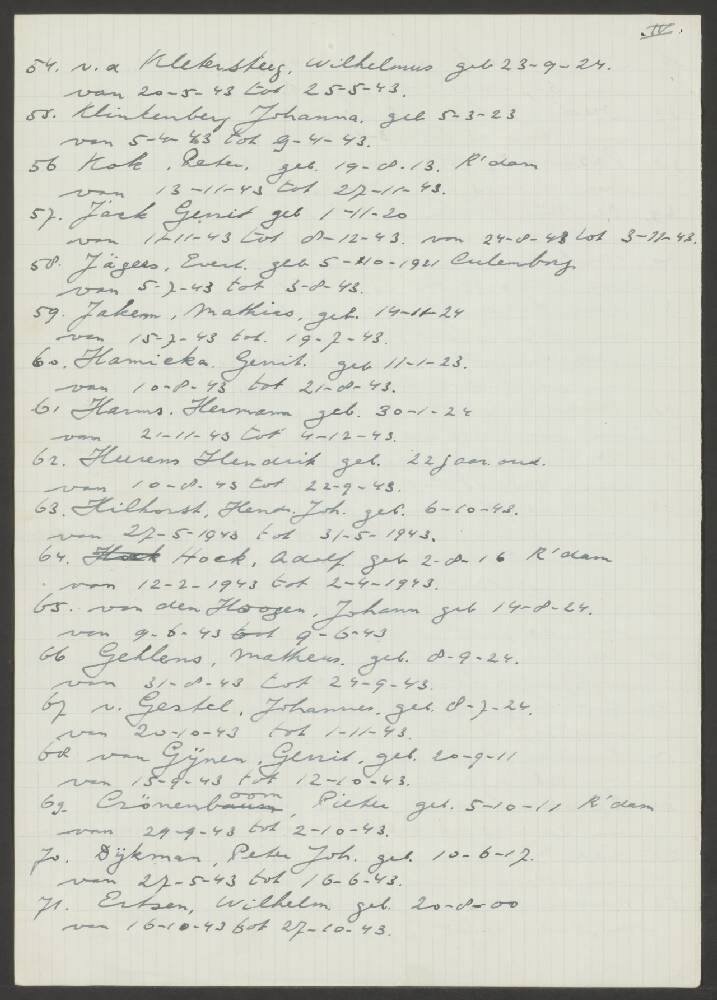 IV.
54. v.d. Klekersteeg, Wilhelmus geb 23-9-24.
van 20-5-43 tot 25-5-43.
55. Klinkenberg Johanna. geb 5-3-23
van 5-4-43 tot 9-4-43.
56 Kok, Peter, geb. 19-8-13. R'dam
van 13-11-43 tot 27-11-43.
57. Jäck Gerrit geb 1-11-20
van 11-11-43 tot 8-12-43. van 24-8-43 tot 3-11-43.
58. Jägers, Evert. geb 5-10-1921 Culenborg
van 5-7-43 tot 5-8-43.
59. Jakem, Mathias, geb. 14-11-24
van 15-7-43 tot. 19-7-43.
60. Hamicka. Gerrit. geb 11-1-23.
van 10-8-43 tot 21-8-43.
61 Harms. Hermann geb. 30-1-24
van 21-11-43 tot 4-12-43.
62. Heurens Hendrik geb. 22 jaar oud.
van 10-8-43 tot 22-9-43.
63. Hilhorst, Hendr. Joh. geb. 6-10-48.
van 27-5-1943 tot 31-5-1943.
64. Hock, Adolf geb 2-8-16 R'dam
van 12-2-1943 tot 2-4-1943.
65. van den Hoogen, Johann geb 14-8-24.
van 9-6-43 tot 9-6-43
66 Gehlens, Matheus. geb. 8-9-24.
van 31-8-43 tot 24-9-43.
67 v. Gestel, Johannes, geb. 8-7-24.
van 20-10-43 tot 1-11-43.
68 van Gijnen, Gerrit, geb. 20-9-11
van 15-9-43 tot 12-10-43.
69. Crönenboom, Pieter geb. 5-10-11 R'dam
van 29-9-43 tot 2-10-43.
70. Dijkman, Peter Joh. geb. 10-6-17.
van 27-5-43 tot 16-6-43.
71. Ertsen, Wilhelm geb. 20-8-00
van 16-10-43 tot 27-10-43.